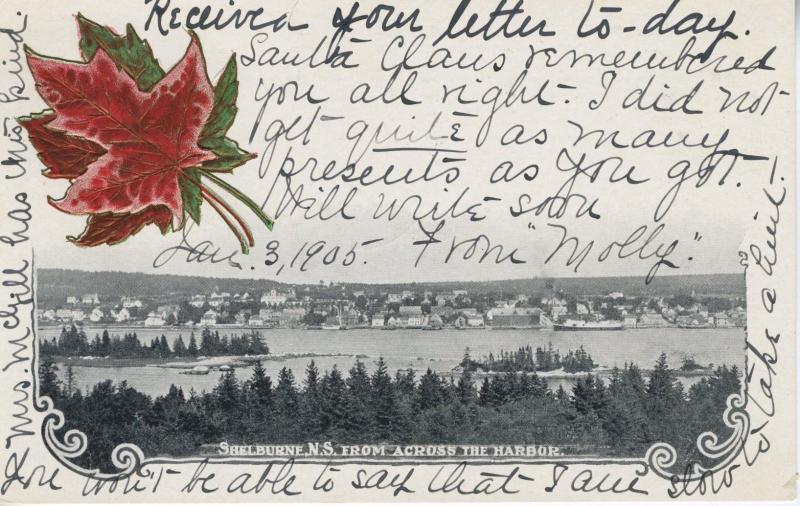 Received your letter to-day.
Santa Claus remembered
you all right. I did not
get quite as many
presents as you got.
Will write soon
Jan. 3, 1905. From "Molly".
SHELBURNE, N.S. FROM ACROSS THE HARBOR.
You won't be able to say that I am slow to
take a hint!
Mrs. McGill has this kind.